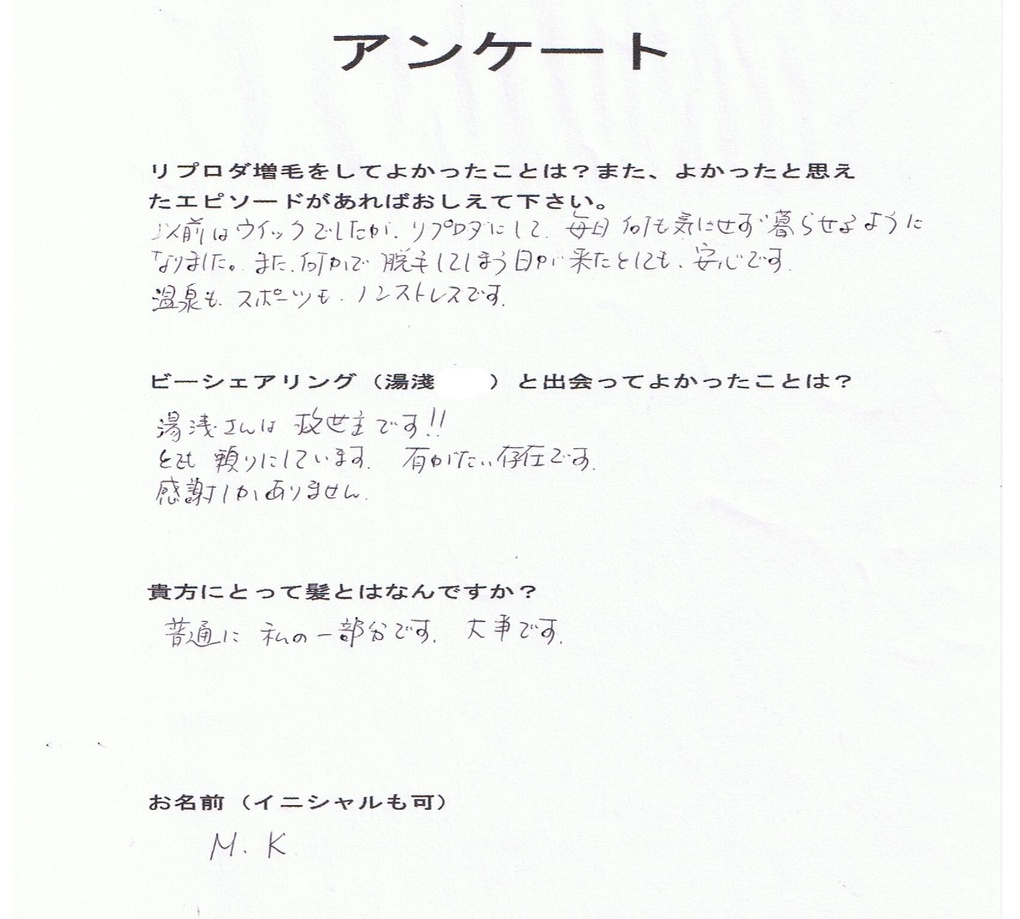 アンケート
リプロダ増毛をしてよかったことは？また、よかったと思え
たエピソードがあればおしえて下さい。
以前はウイッグでしたが、リプロダにして、毎日何も気にせず暮らせるように
なりました。また、何かで脱毛してしまう日が来たとしても、安心です。
温泉も、スポーツも、ノンストレスです。
ビーシェアリング（湯淺　　）と出会ってよかったことは？
湯浅さんは 救世主です!!
とても 頼りにしています。 有がたい存在です。
感謝しかありません。
貴方にとって髪とはなんですか？
普通に 私の一部分です。 大事です。
お名前（イニシャルも可）
M. K